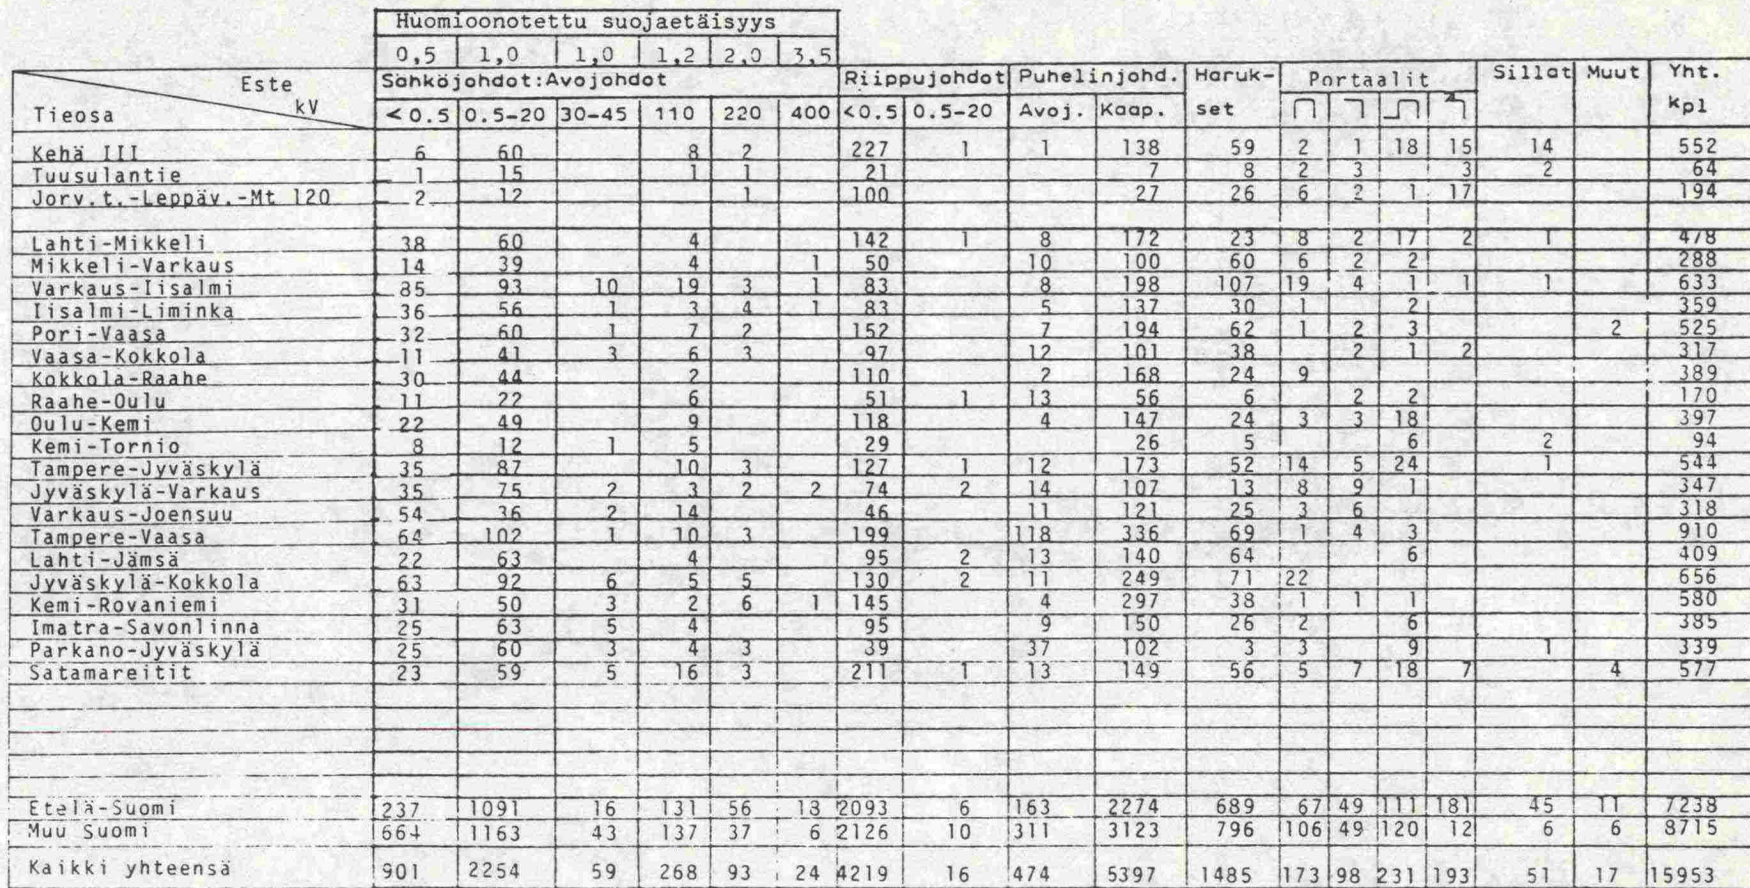 Huomioonotettu suojaetäisyys
0,5 1,0 1,0 1,2 2,0 3,5
Este Sähköjohdot:Avojohdot Riippujohdot Puhelinjohd. Haruk- Portaalit Sillat Muut Yht.
Tieosa kV <0.5 0.5-20 30-45 110 220 400 <0.5 0.5-20 Avoj. Kaap. set kpl
Kehä III 6 60 8 2 227 1 1 138 59 2 1 18 15 14 552
Tuusulantie 1 15 1 1 21 7 8 2 3 3 2 64
Jorv.t.-Leppäv.-Mt 120 2 12 1 100 27 26 6 2 1 17 194
Lahti-Mikkeli 38 60 4 142 1 8 172 23 8 2 17 2 1 478
Mikkeli-Varkaus 14 39 4 1 50 10 100 60 6 2 2 288
Varkaus-Iisalmi 85 93 10 19 3 1 83 8 198 107 19 4 1 1 1 633
Iisalmi-Liminka 36 56 1 3 4 1 83 5 137 30 1 2 359
Pori-Vaasa 32 60 1 7 2 152 7 194 62 1 2 3 2 525
Vaasa-Kokkola 11 41 3 6 3 97 12 101 38 2 1 2 317
Kokkola-Raahe 30 44 2 110 2 168 24 9 389
Raahe-Oulu 11 22 6 51 1 13 56 6 2 2 170
Oulu-Kemi 22 49 9 118 4 147 24 3 3 18 397
Kemi-Tornio 8 12 1 5 29 26 5 6 2 94
Tampere-Jyväskylä 35 87 10 3 127 1 12 173 52 14 5 24 1 544
Jyväskylä-Varkaus 35 75 2 3 2 2 74 2 14 107 13 8 9 1 347
Varkaus-Joensuu 54 36 2 14 46 11 121 25 3 6 318
Tampere-Vaasa 64 102 1 10 3 199 118 336 69 1 4 3 910
Lahti-Jämsä 22 63 4 95 2 13 140 64 6 409
Jyväskylä-Kokkola 63 92 6 5 5 130 2 11 249 71 22 656
Kemi-Rovaniemi 31 50 3 2 6 1 145 4 297 38 1 1 1 580
Imatra-Savonlinna 25 63 5 4 95 9 150 26 2 6 385
Parkano-Jyväskylä 25 60 3 4 3 39 37 102 3 3 9 1 339
Satamareitit 23 59 5 16 3 211 1 13 149 56 5 7 18 7 4 577
Etelä-Suomi 237 1091 16 131 56 18 2093 6 163 2274 689 67 49 111 181 45 11 7238
Muu Suomi 664 1163 43 137 37 6 2126 10 311 3123 796 106 49 120 12 6 6 8715
Kaikki yhteensä 901 2254 59 268 93 24 4219 16 474 5397 1485 173 98 231 193 51 17 15953